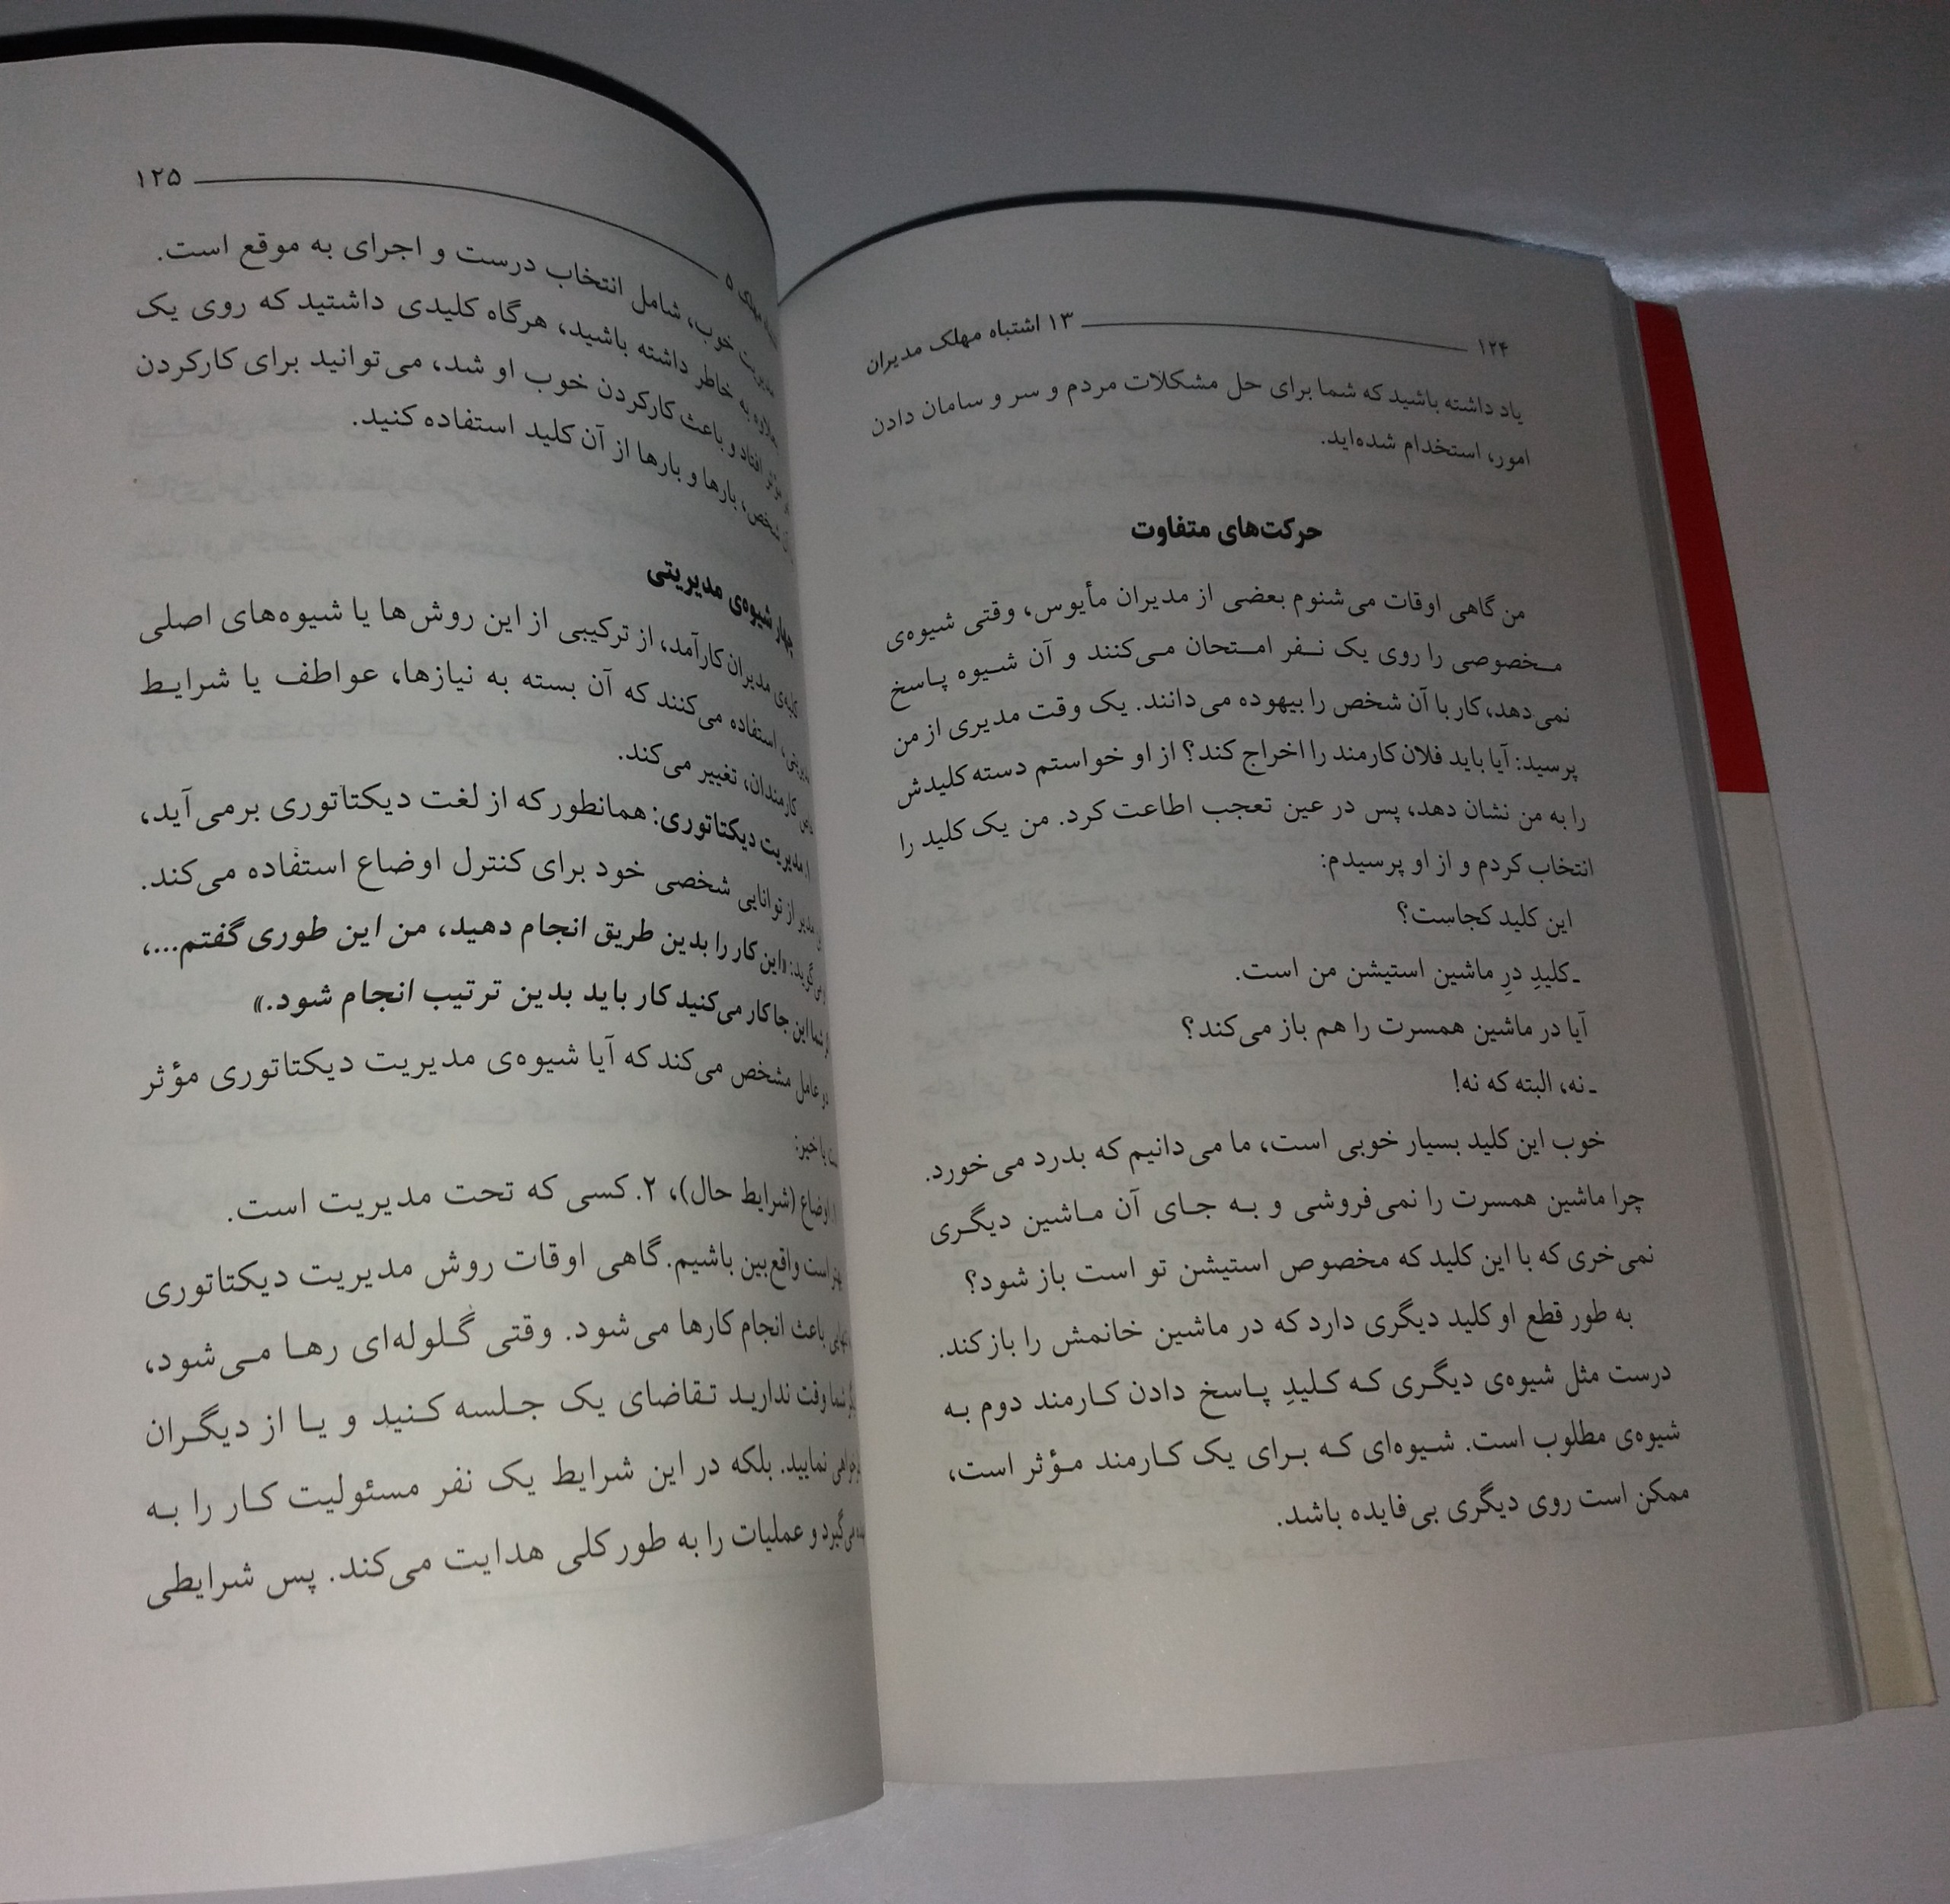 ۱۲۴
۱۳ اشتباه مهلک مدیران
یاد داشته باشید که شما برای حل مشکلات مردم و سر و سامان دادن
امور، استخدام شده‌اید.
حرکت‌های متفاوت
من گاهی اوقات می‌شنوم بعضی از مدیران مأیوس، وقتی شیوه‌ی
مخصوصی را روی یک نفر امتحان می‌کنند و آن شیوه پاسخ
نمی‌دهد، کار با آن شخص را بیهوده می‌دانند. یک وقت مدیری از من
پرسید: آیا باید فلان کارمند را اخراج کند؟ از او خواستم دسته کلیدش
را به من نشان دهد، پس در عین تعجب اطاعت کرد. من یک کلید را
انتخاب کردم و از او پرسیدم:
این کلید کجاست؟
ـ کلیدِ درِ ماشین استیشن من است.
آیا در ماشین همسرت را هم باز می‌کند؟
ـ نه، البته که نه!
خوب این کلید بسیار خوبی است، ما می‌دانیم که بدرد می‌خورد.
چرا ماشین همسرت را نمی‌فروشی و به جای آن ماشین دیگری
نمی‌خری که با این کلید که مخصوص استیشن تو است باز شود؟
به طور قطع او کلید دیگری دارد که در ماشین خانمش را باز کند.
درست مثل شیوه‌ی دیگری که کلیدِ پاسخ دادن کارمند دوم به
شیوه‌ی مطلوب است. شیوه‌ای که برای یک کارمند مؤثر است،
ممکن است روی دیگری بی‌فایده باشد.
مهلک ۵
۱۲۵
مدیریت خوب، شامل انتخاب درست و اجرای به موقع است.
بعلاوه به خاطر داشته باشید، هرگاه کلیدی داشتید که روی یک
افتاد و باعث کارکردن خوب او شد، می‌توانید برای کارکردن
شخص، بارها و بارها از آن کلید استفاده کنید.
چهار شیوه‌ی مدیریتی
مدیران کارآمد، از ترکیبی از این روش‌ها یا شیوه‌های اصلی
مدیریتی، استفاده می‌کنند که آن بسته به نیازها، عواطف یا شرایط
کارمندان، تغییر می‌کند.
۱. مدیریت دیکتاتوری: همانطور که از لغت دیکتاتوری برمی‌آید،
مدیر از توانایی شخصی خود برای کنترل اوضاع استفاده می‌کند.
می‌گوید: «این کار را بدین طریق انجام دهید، من این طوری گفتم...،
شما این جا کار می‌کنید کار باید بدین ترتیب انجام شود.»
دو عامل مشخص می‌کند که آیا شیوه‌ی مدیریت دیکتاتوری مؤثر
یا خیر:
اوضاع (شرایط حال)، ۲. کسی که تحت مدیریت است.
بهتر است واقع‌بین باشیم. گاهی اوقات روش مدیریت دیکتاتوری
باعث انجام کارها می‌شود. وقتی گلوله‌ای رها می‌شود،
شما وقت ندارید تقاضای یک جلسه کنید و یا از دیگران
نمایید. بلکه در این شرایط یک نفر مسئولیت کار را به
می‌گیرد و عملیات را به طور کلی هدایت می‌کند. پس شرایطی